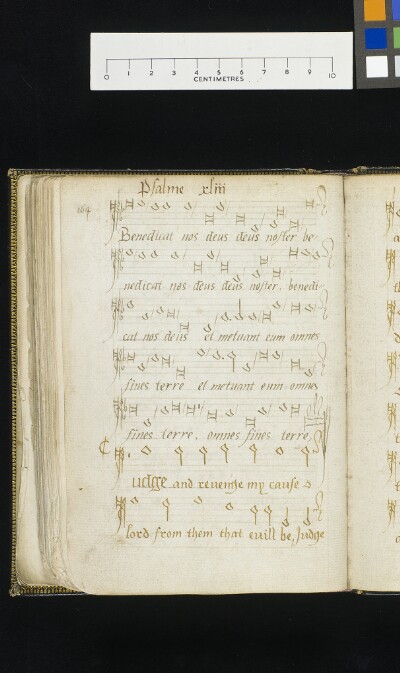 0 1 2 3 4 5 6 7 8 9 10
CENTIMETRES
Psalme xliii
164
Benedicat nos deus deus noster be
nedicat nos deus deus noster, benedi
cat nos deus et metuant eum omnes
fines terre et metuant eum omnes
fines terre, omnes fines terre,
udge and revenge my cause o
lord from them that euill be, Judge